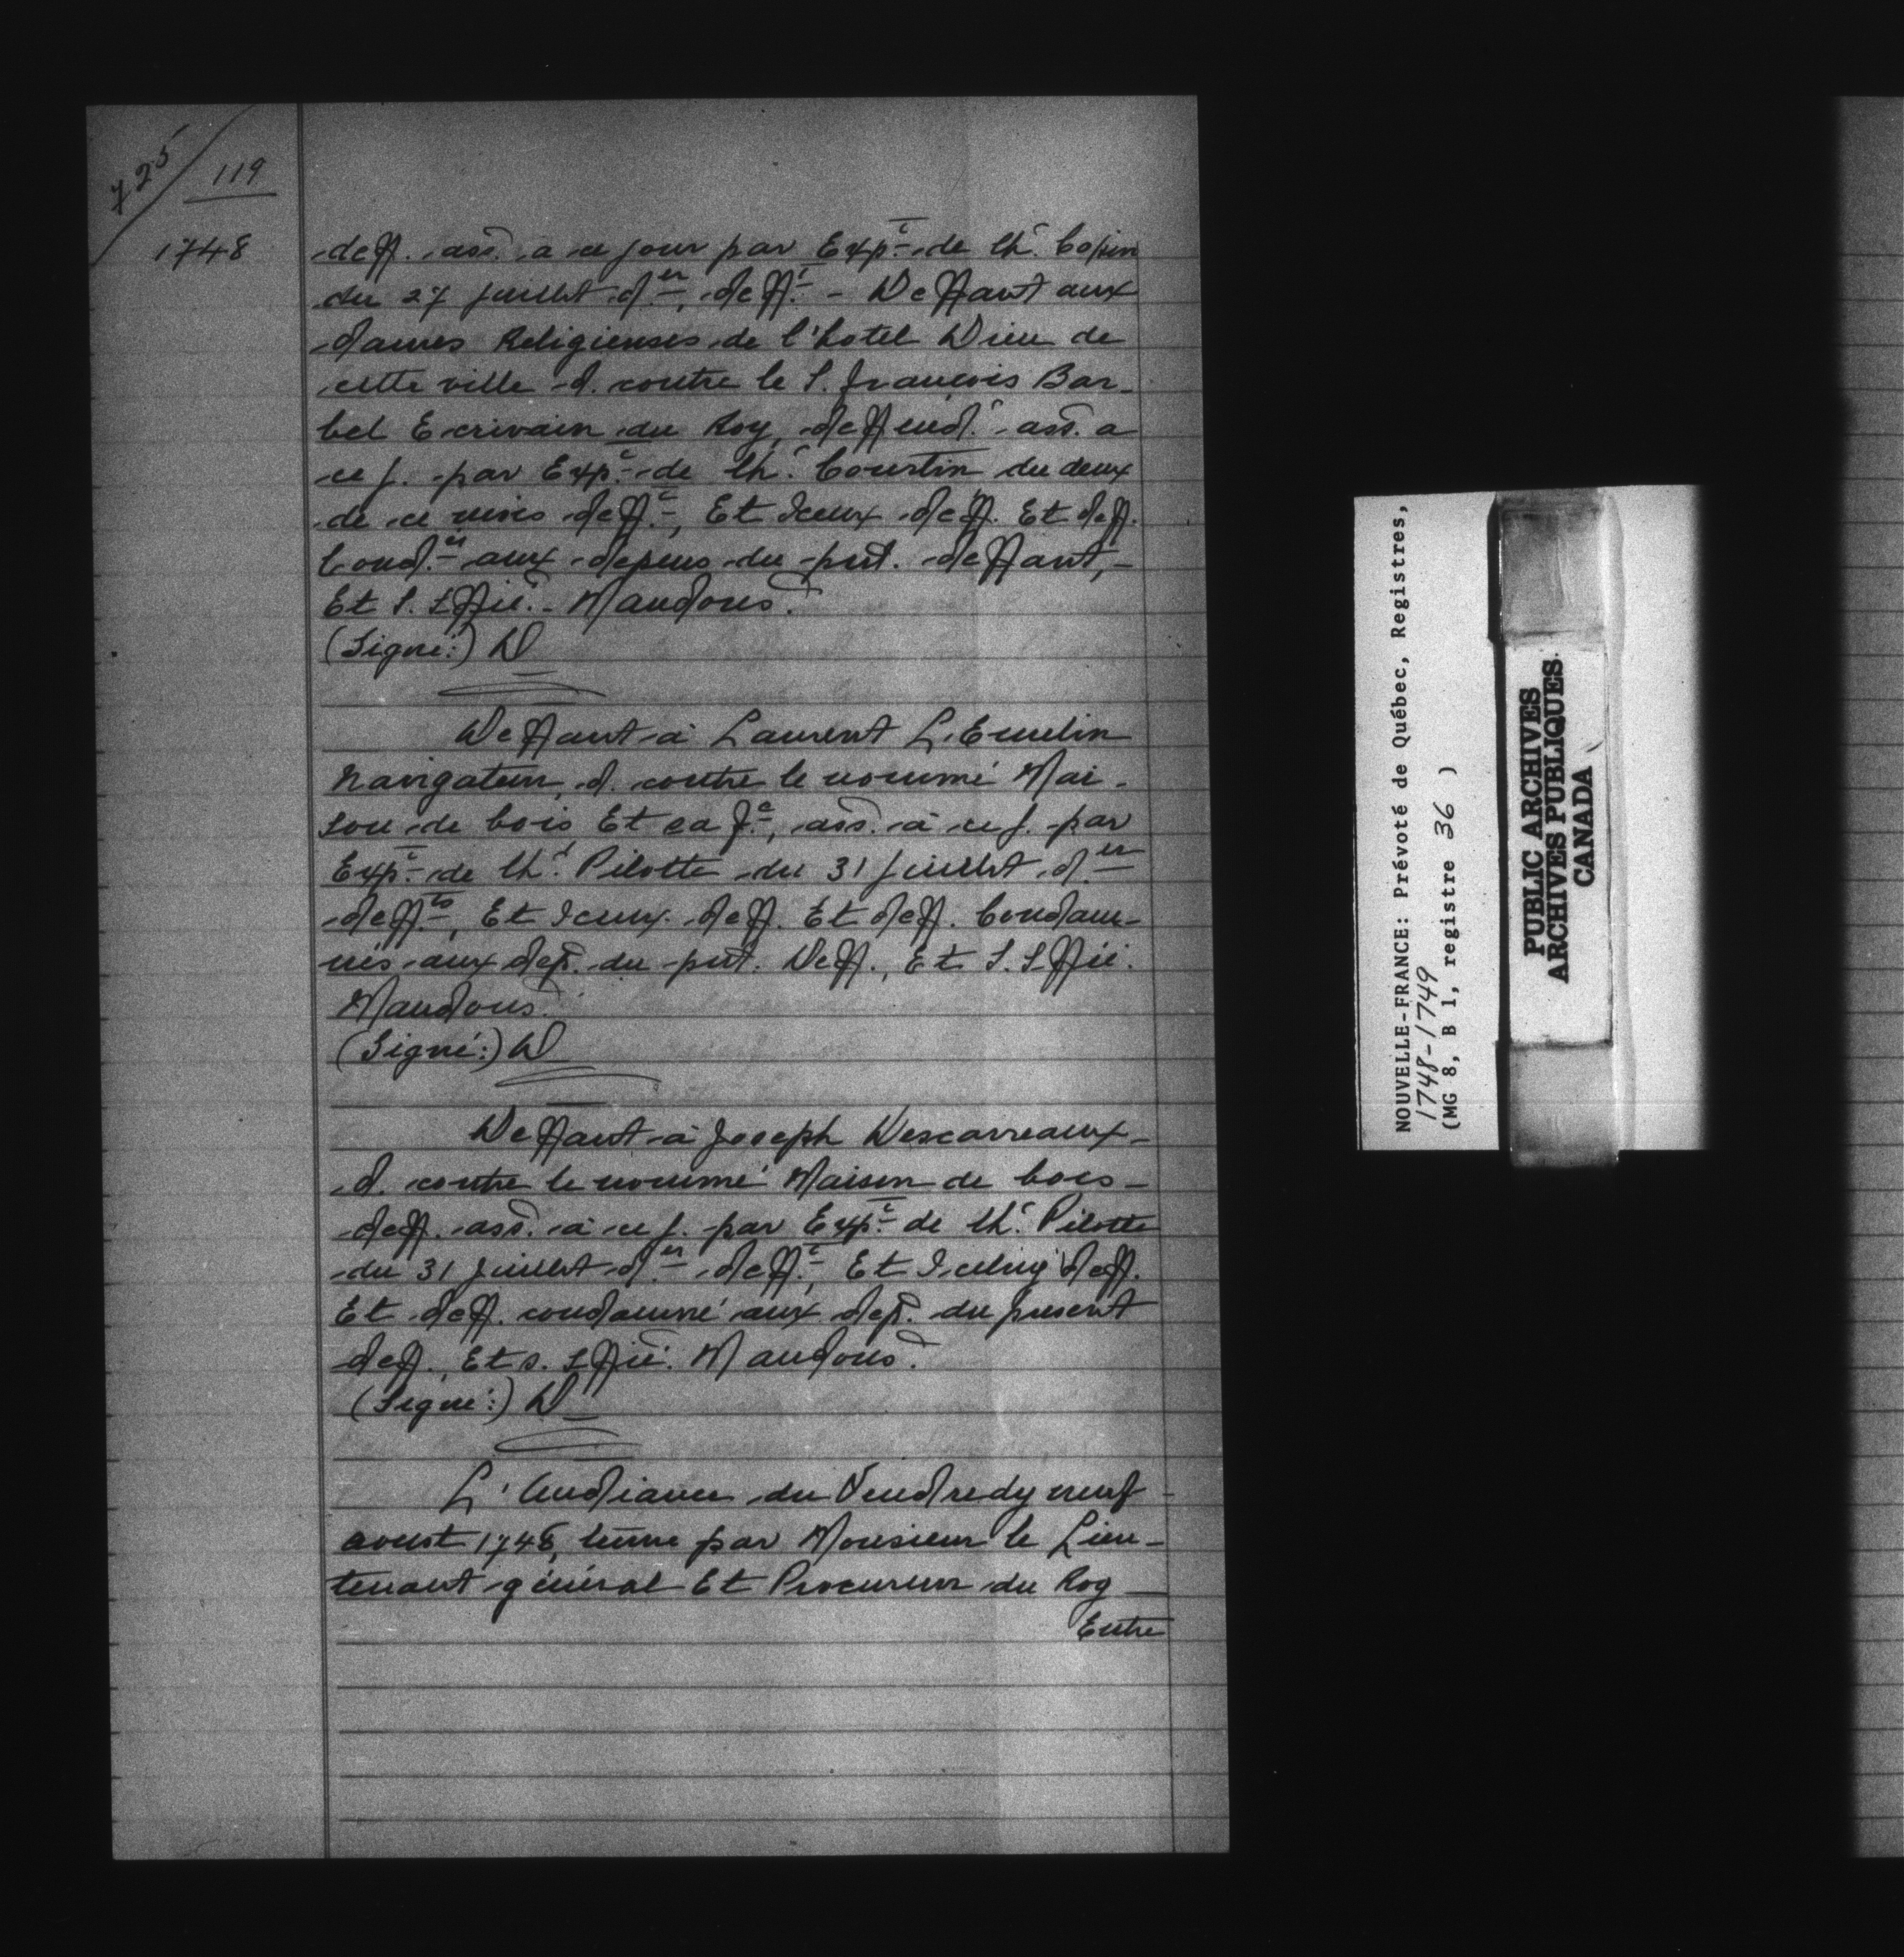 725/119
1748
deff. ass. a ce jour par Exp.t de lh.r Copin
du 27 juillet d.er, deff.t - Deffaut aux
dames Religieuses de l'hotel Dieu de
cette ville d. contre le S. françois Bar-
bel Ecrivain du Roy, deffend.r ass. a
ce j. par Exp.t de lh.r Courtin du deux
de ce mois deff.t, Et Iceux deff. Et deff.
Cond.és aux depens du pnt. deffaut, -
Et S. Sffié. - Mandons.
(Signé:) D
Deffaut à Laurent L'Emelin
Navigateur, d. contre le nommé Mai-
son de bois Et sa f.e, ass. à ce j. par
Exp.t de lh.r Pilotte du 31 juillet d.er
deff.ts, Et Iceux deff. Et deff. Condam-
nés aux dep. du pnt. Deff., Et S. Sffié.
Mandons.
(Signé:) D
Deffaut à Joseph Descarreaux -
d. contre le nommé Maison de bois -
deff. ass. à ce j. par Exp.t de lh.r Pilotte
du 31 juillet d.er deff.t, Et Iceluy deff.
Et deff. condamné aux dep. du present
deff., Et s. sffié. Mandons.
(Signé:) D
L'Audiance du Vendredy neuf -
aoust 1748, tenue par Monsieur le Lieu-
tenant général Et Procureur du Roy -
Entre
NOUVELLE-FRANCE: Prévoté de Québec, Registres,
1748-1749
(MG 8, B 1, registre 36 )
PUBLIC ARCHIVES
ARCHIVES PUBLIQUES
CANADA